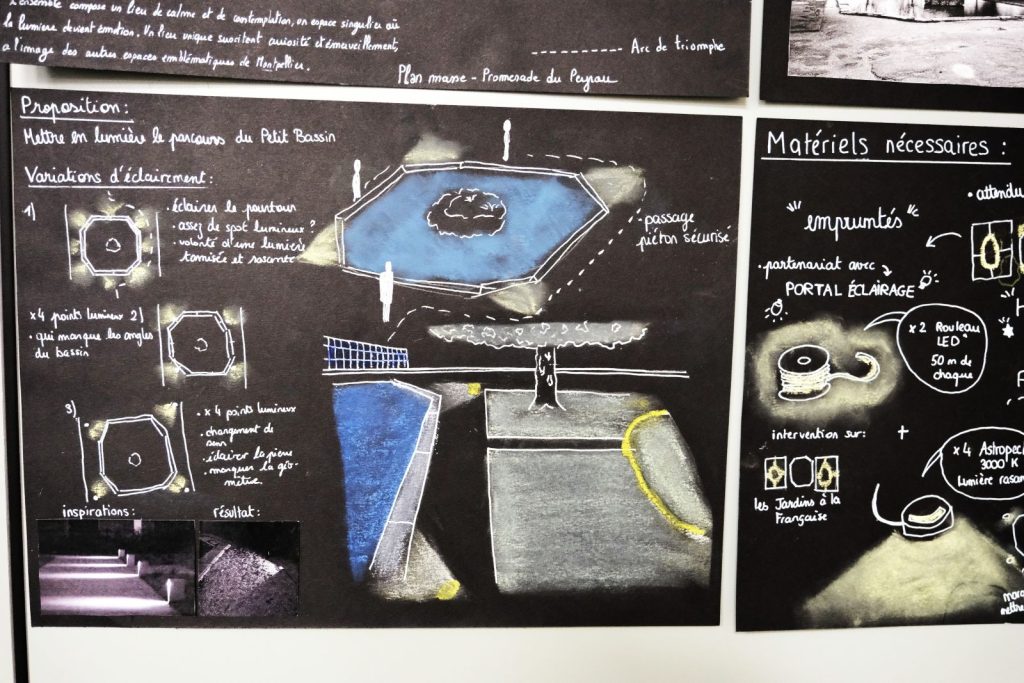 L'ensemble compose un lieu de calme et de contemplation, un espace singulier où
la lumière devient émotion. Un lieu unique suscitant curiosité et émerveillement,
a l'image des autres espaces emblématiques de Montpellier.
Arc de triomphe
Plan masse - Promenade du Peyrou
Proposition:
Mettre en lumière le parcours du Petit Bassin
Variations d'éclairement:
1)
• éclairer le pourtour
- assez de spot lumineux ?
• volonté d'une lumière
tamisée et rasante
passage
piéton sécurisé
x4 points lumineux 2)
• qui marque les angles
du bassin
3)
• x 4 points lumineux
• changement de
sens
• éclairer la pierre
• marquer la géo-
métrie
inspirations:
résultat:
Matériels nécessaires :
• attendu
"empruntés"
• partenariat avec
PORTAL ÉCLAIRAGE
x 2 Rouleau
LED
50 m de
chaque
intervention sur:
+
les Jardins à la
Française
x 4 Astropec
3000°K
Lumière rasan
mettre